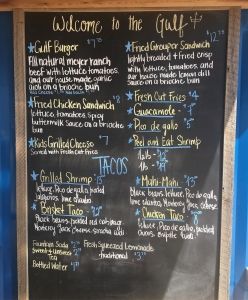 Welcome to the Gulf
Gulf Burger
All natural meyer ranch
beef with lettuce, tomatoes,
and our house made garlic
aioli on a brioche bun
Fried Chicken Sandwich 8
lettuce, tomatoes, spicy
buttermilk sauce on a brioche
bun
Kids Grilled Cheese 7
Served with fresh cut fries
Fried Grouper Sandwich
lightly breaded & fried crisp
with lettuce, tomatoes, and
our house made lemon dill
sauce on a brioche bun
Fresh Cut Fries 4
Guacamole
Pico de gallo 5
Peel and Eat Shrimp
TACOS
Grilled Shrimp
lettuce, Pico de gallo,
jalapeños, lime cilantro
Brisket Taco
Black beans,
Monterey Jack cheese,
Mahi-Mahi 13
Black beans, lettuce, Pico de gallo,
lime cilantro, Monterey Jack cheese
Chicken Taco
lettuce, Pico de gallo, pickled
onions, chipotle
Fountain Soda
Sweet & Unsweet
Tea
Bottled Water
Fresh Squeezed Lemonade
Traditional